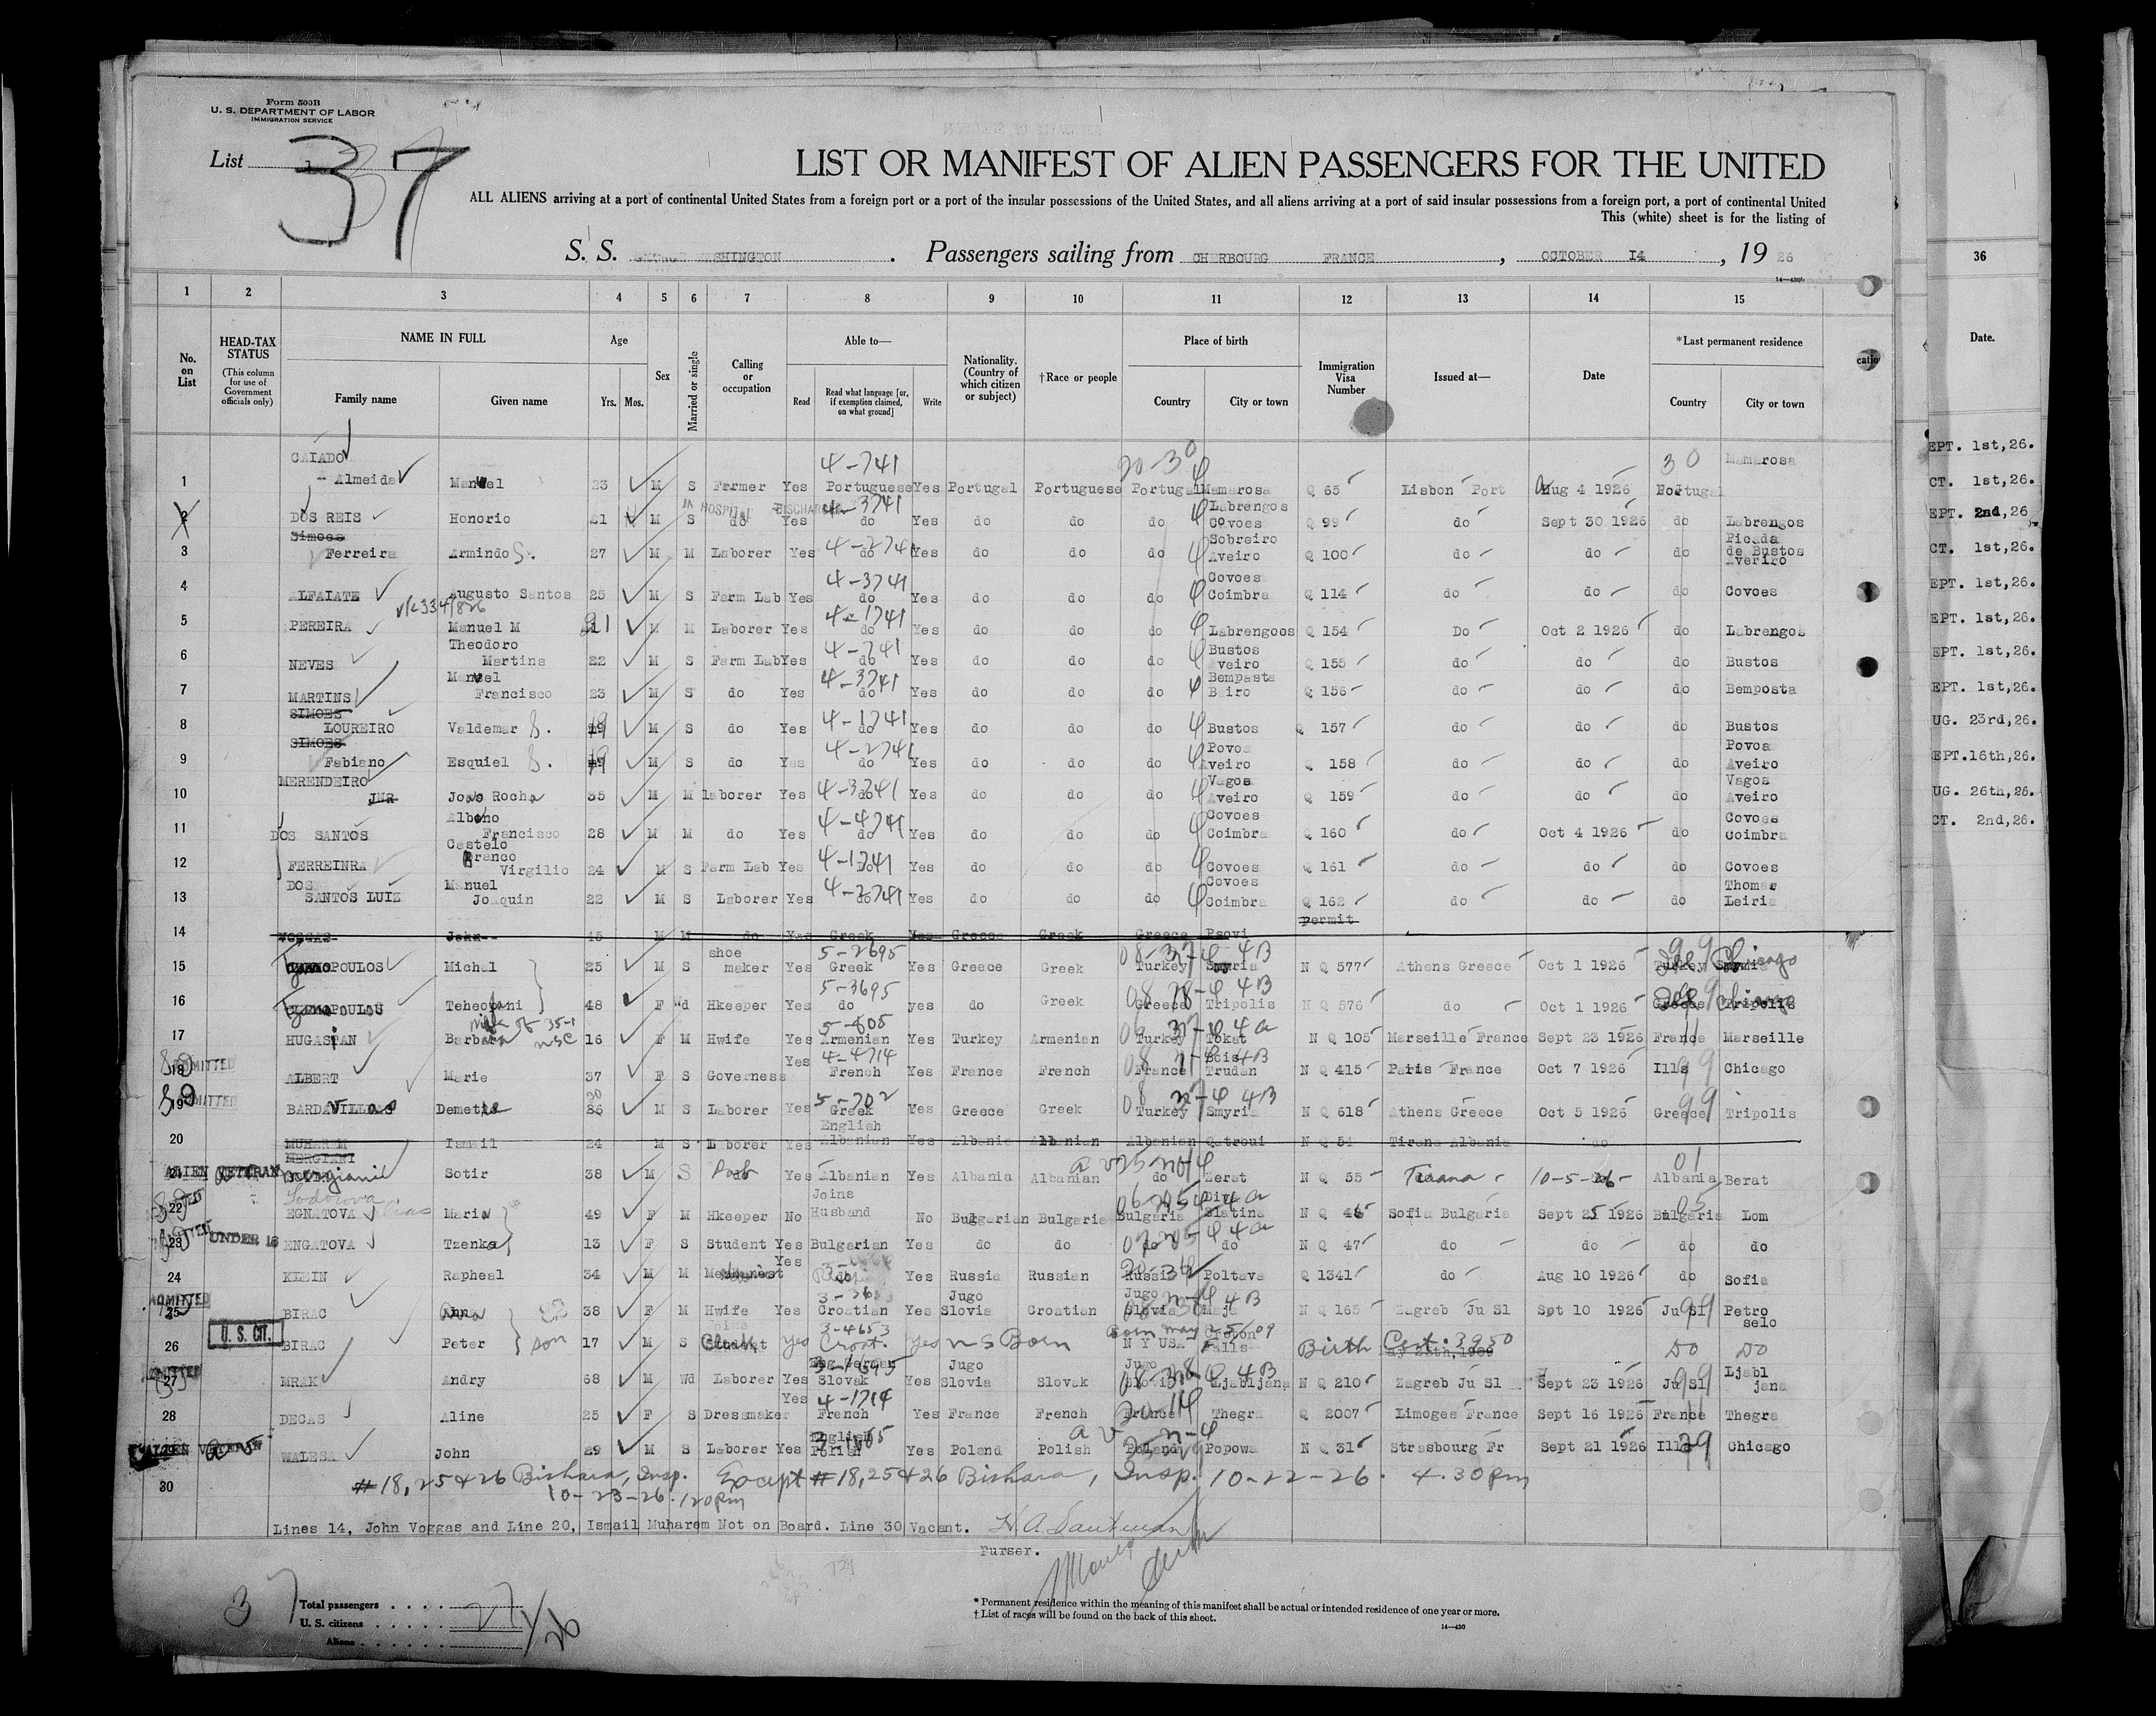 Form 500B
U. S. DEPARTMENT OF LABOR
IMMIGRATION SERVICE
List 1
37
LIST OR MANIFEST OF ALIEN PASSENGERS FOR THE UNITED
ALL ALIENS arriving at a port of continental United States from a foreign port or a port of the insular possessions of the United States, and all aliens arriving at a port of said insular possessions from a foreign port, a port of continental United
This (white) sheet is for the listing of
S. S. GEORGE WASHINGTON . Passengers sailing from CHERBOURG FRANCE , OCTOBER 14 , 19 26
14—430
1 2 3 4 5 6 7 8 9 10 11 12 13 14 15
No. on List
HEAD-TAX STATUS (This column for use of Government officials only)
NAME IN FULL Family name Given name
Age Yrs. Mos.
Sex
Married or single
Calling or occupation
Able to— Read Read what language [or, if exemption claimed, on what ground] Write
Nationality. (Country of which citizen or subject)
†Race or people
Place of birth Country City or town
Immigration Visa Number
Issued at—
Date
*Last permanent residence Country City or town
1 CAIADO Almeida Manuel 23 M S Farmer Yes 4-741 Portuguese Yes Portugal Portuguese Portugal Mamarosa Q 65 Lisbon Port Aug 4 1926 Portugal Mamarosa
IN HOSPITAL DISCHARGED
2 DOS REIS Honorio 21 M S do Yes 4-3741 do Yes do do do Labrengos Covoes Q 99 do Sept 30 1926 do Labrengos
3 Simoes Ferreira Armindo S. 27 M M Laborer Yes do Yes do do do Sobreiro Aveiro Q 100 do do do Picada de Bustos Averiro
4 ALFAIATE Augusto Santos 25 M S Farm Lab Yes 4-3741 do Yes do do do Covoes Coimbra Q 114 do do do Covoes
5 PEREIRA Manuel M 21 M M Laborer Yes 4-1741 do Yes do do do Labrengoos Q 154 Do Oct 2 1926 do Labrengos
6 NEVES Theodoro Martins 22 M S Farm Lab Yes 4-741 do Yes do do do Bustos Aveiro Q 155 do do do Bustos
7 MARTINS Manuel Francisco 23 M S do Yes 4-3741 do Yes do do do Bempasta Bairo Q 156 do do do Bemposta
8 SIMOES LOUREIRO Valdemar S. 19 M S do Yes 4-1741 do Yes do do do Bustos Q 157 do do do Bustos
9 SIMOES Fabiano Esquiel S. 19 M S do Yes 4-2741 do Yes do do do Povoa Aveiro Q 158 do do do Povoa Aveiro
10 MERENDEIRO JNR Joao Rocha 35 M M laborer Yes 4-3741 do Yes do do do Vagos Aveiro Q 159 do do do Vagos Aveiro
11 DOS SANTOS Albano Francisco 28 M M do Yes 4-4741 do Yes do do do Covoes Coimbra Q 160 do Oct 4 1926 do Covoes Coimbra
12 FERREINRA Castelo Branco Virgilio 24 M S Farm Lab Yes 4-1741 Do Yes do do do Covoes Q 161 do do do Covoes
13 DOS SANTOS LUIZ Manuel Joaquin 22 M S Laborer Yes 4-2741 do Yes do do do Covoes Coimbra Q 162 do do do Thomar Leiria
14 VOGGAS John 45 M M do Yes Greek Yes Greece Greek Greece Psovi permit
15 Michal 25 M S shoe maker Yes 5-2695 Greek Yes Greece Greek Turkey Smyria N Q 577 Athens Greece Oct 1 1926 Turkey Chicago
16 48 F Wd Hkeeper Yes 5-3695 do yes do Greek Greece Tripolis N Q 576 do Oct 1 1926 Greece Tripolis Chicago
17 HUGASIAN Barbara 16 F M Hwife Yes Armenian Yes Turkey Armenian Turkey Tokat N Q 105 Marseille France Sept 23 1926 France Marseille
ADMITTED
18 ALBERT Marie 37 F S Governess Yes 4-4714 French Yes France French France Trudan N Q 415 Paris France Oct 7 1926 Ills 99 Chicago
ADMITTED
19 Demetre 26 M S Laborer Yes 5-702 Greek English Yes Greece Greek Turkey Smyria N Q 618 Athens Greece Oct 5 1926 Greece 99 Tripolis
20 MUHAREM Ismail 24 M S Laborer Yes Albanian Yes Albania Albanian Albanian Qatroui N Q 54 Tirana Albania do
ALIEN VETERAN
21 MERGIANI Sotir 38 M S Yes Albanian Yes Albania Albanian do Berat N Q 55 Tirana 10-5-26 Albania Berat
22 Todorova EGNATOVA Maria 49 F M Hkeeper No Joins Husband No Bulgarian Bulgaria Bulgaria Slatina N Q 46 Sofia Bulgaria Sept 25 1926 Bulgaria Lom
UNDER 16
23 ENGATOVA Tzenka 13 F S Student Yes Bulgarian Yes do do do do N Q 47 do do do do
24 KLEIN Rapheal 34 M M Yes Yes Russia Russian Russia Poltava Q 1341 do Aug 10 1926 do Sofia
ADMITTED
25 BIRAC Anna 38 F M Hwife Yes Croatian Yes Jugo Slovia Croatian Jugo Slovia N Q 165 Zagreb Ju Sl Spt 10 1926 Ju Sl 99 Petro selo
U. S. CIT.
26 BIRAC Peter son 17 M S Yes 3-4653 Croat. Yes U S Born Born May 25/09 N Y USA Croton Falls Birth Cert. 3950 Do Do
27 MRAK Andry 68 M Wd Laborer Yes Slovak Yes Jugo Slovia Slovak Jugo Slovia Ljabljana N Q 210 Zagreb Ju Sl Sept 23 1926 Ju Sl 99 Ljabl jana
28 DECAS Aline 25 F S Dressmaker Yes 4-1714 French Yes France French France Thegra Q 2007 Limoges France Sept 16 1926 France Thegra
ALIEN VETERAN
29 WALESA John 29 M S Laborer Yes English Polish Yes Poland Polish Poland Popowa N Q 31 Strasbourg Fr Sept 21 1926 Ills Chicago
30 #18, 25 & 26 Bishara, Insp. Except #18, 25 & 26 Bishara, Insp. 10-22-26. 4.30 pm
10-23-26. 120 pm
Lines 14, John Voggas and Line 20, Ismail Muharem Not on Board. Line 30 Vacant.
Purser.
37
Total passengers . . . . 27
U. S. citizens . . . . . 1
Aliens . . . . . . 26
* Permanent residence within the meaning of this manifest shall be actual or intended residence of one year or more.
† List of races will be found on the back of this sheet.
14—430
36
Date.
EPT. 1st,26.
CT. 1st,26.
EPT. 2nd,26
CT. 1st,26.
EPT. 1st,26.
EPT. 1st,26.
EPT. 1st,26.
EPT. 1st,26.
UG. 23rd,26.
EPT.16th,26.
UG. 26th,26.
CT. 2nd,26.